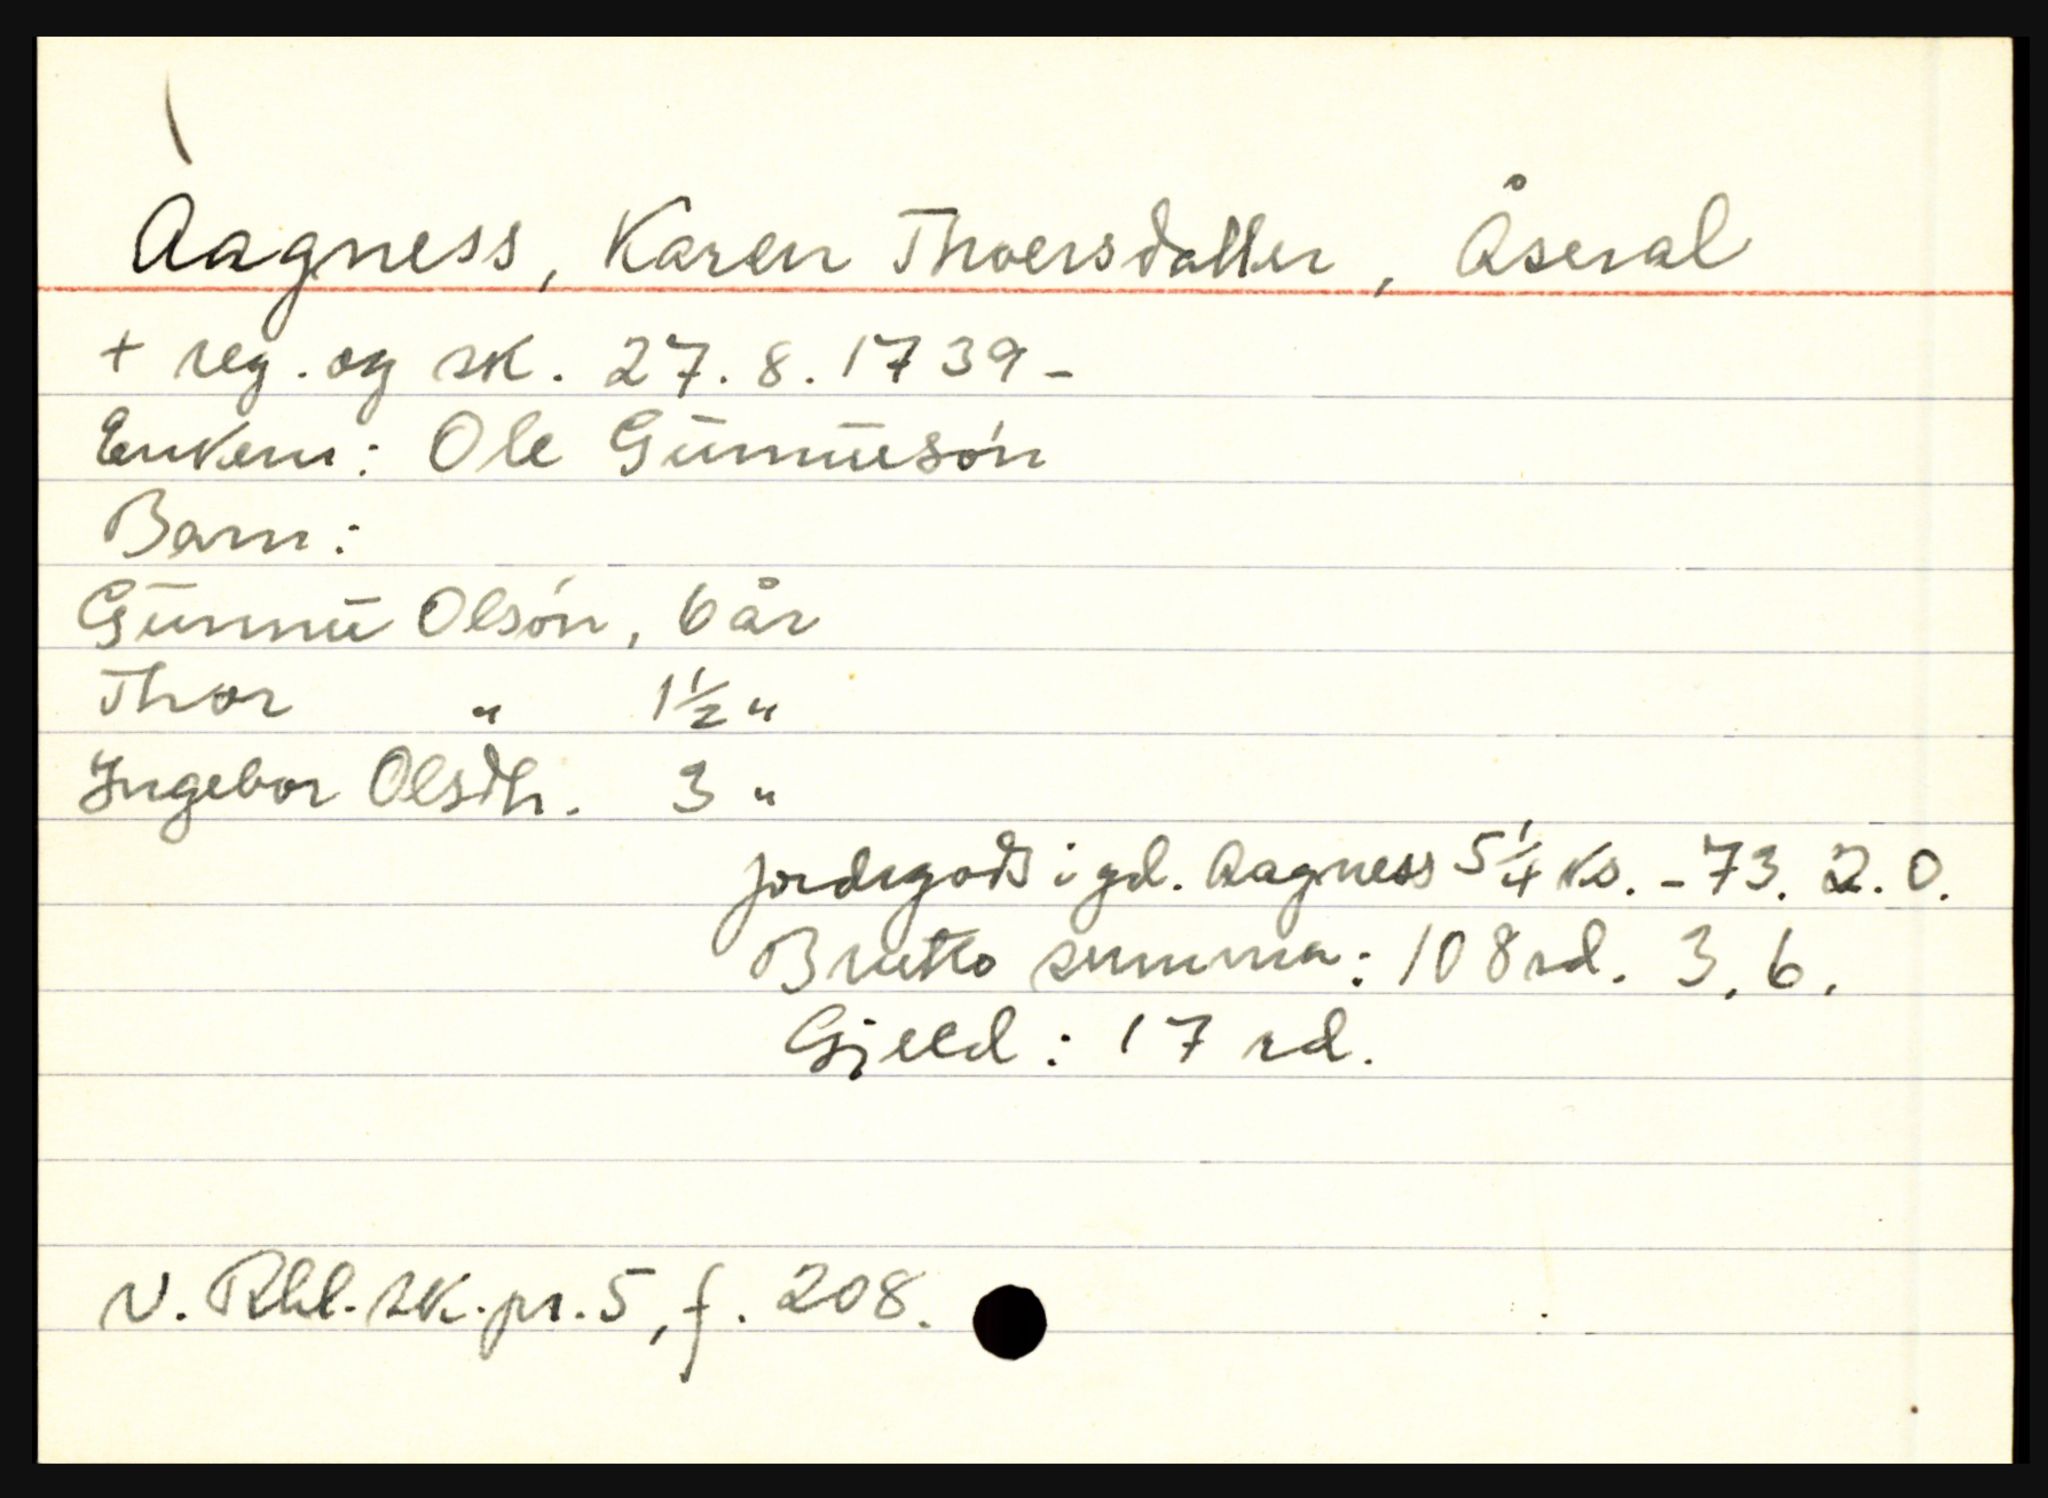 Aagness, Karen Thoersdatter, Åseral
+ reg. og sk. 27.8.1739-
Enkem: Ole Gunnuesøn
Barn:
Gunnu Olsøn, 6 år
Thor " 1½ "
Ingebor Olsdtr. 3 "
jordegods i gd. Aagness 5¼ ks. - 73. 2. 0.
Brutto summa: 108 rd. 3. 6.
Gjeld: 17 rd.
N. Rbl. sk. pr. 5, f. 208.